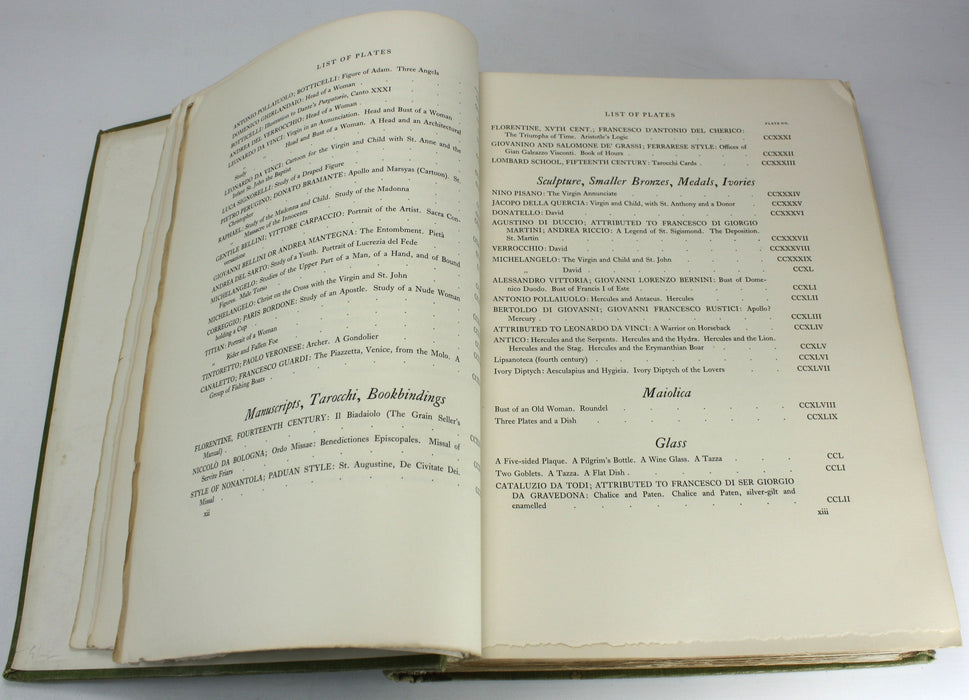 LIST OF PLATES
ANTONIO POLLAIUOLO; BOTTICELLI: Figure of Adam. Three Angels
DOMENICO GHIRLANDAIO: Head of a Woman
BOTTICELLI: Illustration to Dante's Purgatorio, Canto XXXI
ANDREA DEL VERROCCHIO: Head of a Woman
LEONARDO DA VINCI: Virgin in an Annunciation. Head and Bust of a Woman
„ Head and Bust of a Woman. A Head and an Architectural
Study
LEONARDO DA VINCI: Cartoon for the Virgin and Child with St. Anne and the
Infant St. John the Baptist
LUCA SIGNORELLI: Study of a Draped Figure
PIETRO PERUGINO; DONATO BRAMANTE: Apollo and Marsyas (Cartoon). St.
Christopher
RAPHAEL: Study of the Madonna and Child. Study of the Madonna
„ Massacre of the Innocents
GENTILE BELLINI; VITTORE CARPACCIO: Portrait of the Artist. Sacra Con-
versazione
GIOVANNI BELLINI OR ANDREA MANTEGNA: The Entombment. Pietà
ANDREA DEL SARTO: Study of a Youth. Portrait of Lucrezia del Fede
MICHELANGELO: Studies of the Upper Part of a Man, of a Hand, and of Bound
Figures. Male Torso
MICHELANGELO: Christ on the Cross with the Virgin and St. John
CORREGGIO; PARIS BORDONE: Study of an Apostle. Study of a Nude Woman
holding a Cup
TITIAN: Portrait of a Woman
„ Rider and Fallen Foe
TINTORETTO; PAOLO VERONESE: Archer. A Gondolier
CANALETTO; FRANCESCO GUARDI: The Piazzetta, Venice, from the Molo. A
Group of Fishing Boats
Manuscripts, Tarocchi, Bookbindings
FLORENTINE, FOURTEENTH CENTURY: Il Biadaiolo (The Grain Seller's
Manual)
NICCOLÒ DA BOLOGNA; Ordo Missae: Benedictiones Episcopales. Missal of
Servite Friars
STYLE OF NONANTOLA; PADUAN STYLE: St. Augustine, De Civitate Dei.
Missal
xii
LIST OF PLATES
PLATE NO.
FLORENTINE, XVTH CENT.; FRANCESCO D'ANTONIO DEL CHERICO:
The Triumphs of Time. Aristotle's Logic CCXXXI
GIOVANINO AND SALOMONE DE' GRASSI; FERRARESE STYLE: Offices of
Gian Galeazzo Visconti. Book of Hours CCXXXII
LOMBARD SCHOOL, FIFTEENTH CENTURY: Tarocchi Cards CCXXXIII
Sculpture, Smaller Bronzes, Medals, Ivories
NINO PISANO: The Virgin Annunciate CCXXXIV
JACOPO DELLA QUERCIA: Virgin and Child, with St. Anthony and a Donor CCXXXV
DONATELLO: David CCXXXVI
AGUSTINO DI DUCCIO; ATTRIBUTED TO FRANCESCO DI GIORGIO
MARTINI; ANDREA RICCIO: A Legend of St. Sigismond. The Deposition.
St. Martin CCXXXVII
VERROCCHIO: David CCXXXVIII
MICHELANGELO: The Virgin and Child and St. John CCXXXIX
„ David CCXL
ALESSANDRO VITTORIA; GIOVANNI LORENZO BERNINI: Bust of Dome-
nico Duodo. Bust of Francis I of Este CCXLI
ANTONIO POLLAIUOLO: Hercules and Antaeus. Hercules CCXLII
BERTOLDO DI GIOVANNI; GIOVANNI FRANCESCO RUSTICI: Apollo?
Mercury CCXLIII
ATTRIBUTED TO LEONARDO DA VINCI: A Warrior on Horseback CCXLIV
ANTICO: Hercules and the Serpents. Hercules and the Hydra. Hercules and the Lion.
Hercules and the Stag. Hercules and the Erymanthian Boar CCXLV
Lipsanoteca (fourth century) CCXLVI
Ivory Diptych: Aesculapius and Hygieia. Ivory Diptych of the Lovers CCXLVII
Maiolica
Bust of an Old Woman. Roundel CCXLVIII
Three Plates and a Dish CCXLIX
Glass
A Five-sided Plaque. A Pilgrim's Bottle. A Wine Glass. A Tazza CCL
Two Goblets. A Tazza. A Flat Dish CCLI
CATALUZIO DA TODI; ATTRIBUTED TO FRANCESCO DI SER GIORGIO
DA GRAVEDONA: Chalice and Paten. Chalice and Paten, silver-gilt and
enamelled CCLII
xiii